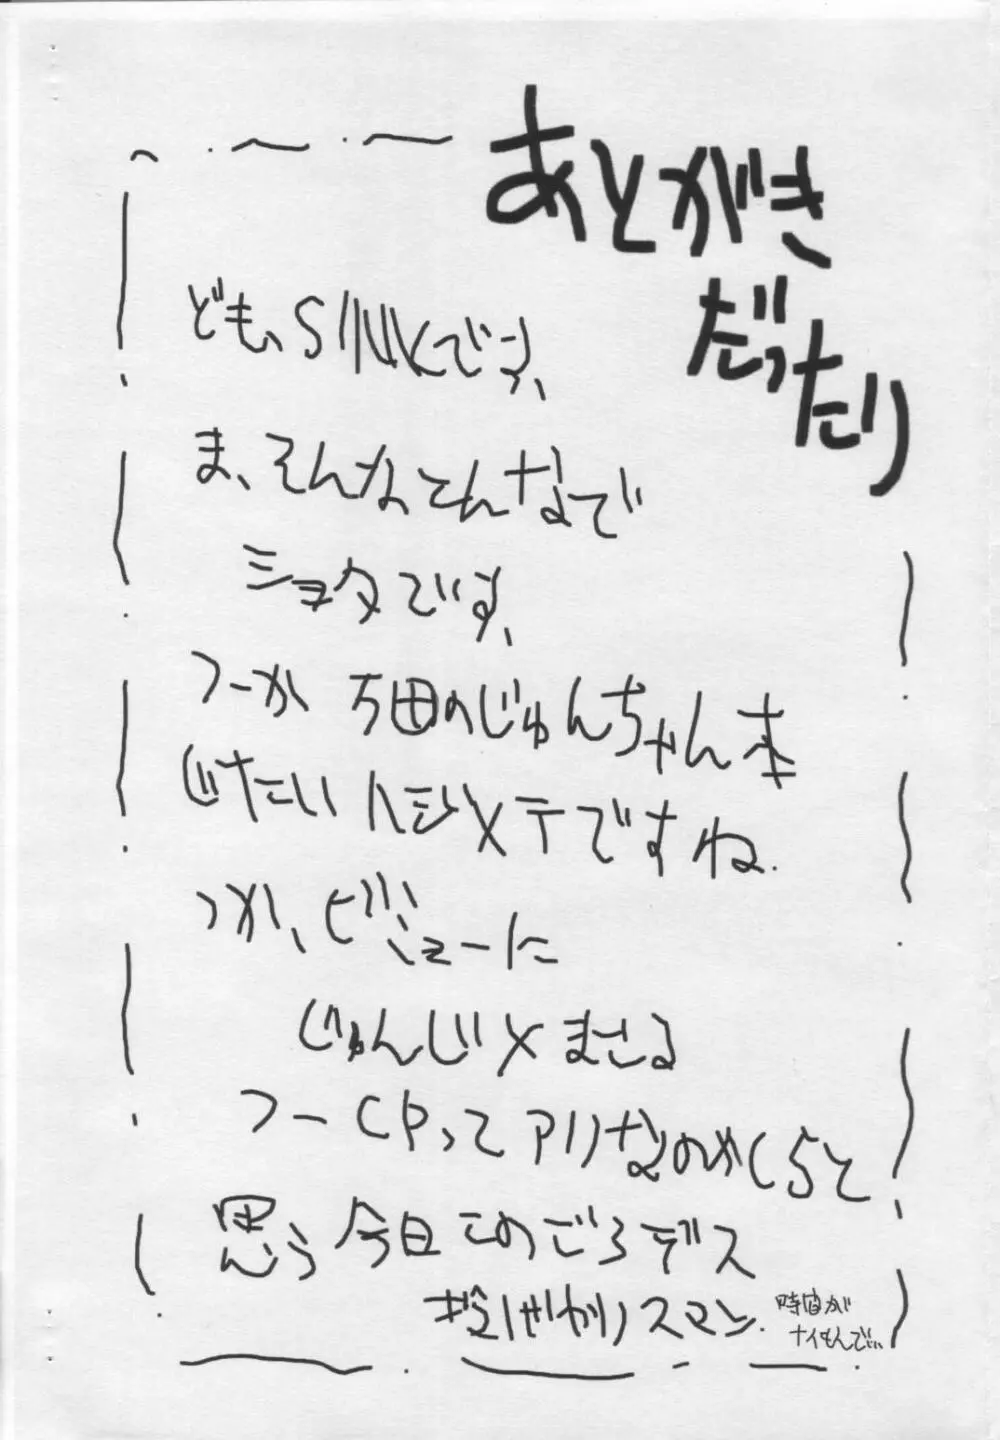 あとがき
だったり
ども、SINKです、
ま、そんなこんなで
ショタです、
つーか 万田のじゅんちゃん本
じたい ハジメテですね.
つか、ビジューに
じゅんじ×まさる
つーCPって アリなのかしらと
思う 今日このごろデス
スマン.
時間が
ナイもんで…